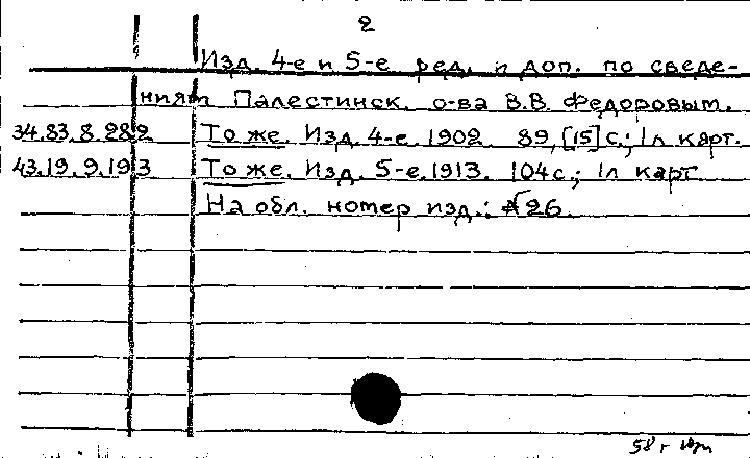 2
Изд. 4-е и 5-е ред. и доп. по сведе-
ниям Палестинск. о-ва В.В. Федоровым.
34.83.8.282 То же. Изд. 4-е. 1902 89,[15]с.; 1л карт.
43.19.9.193 То же. Изд. 5-е. 1913. 104с.; 1л карт
На обл. номер изд.: №26.
58 г